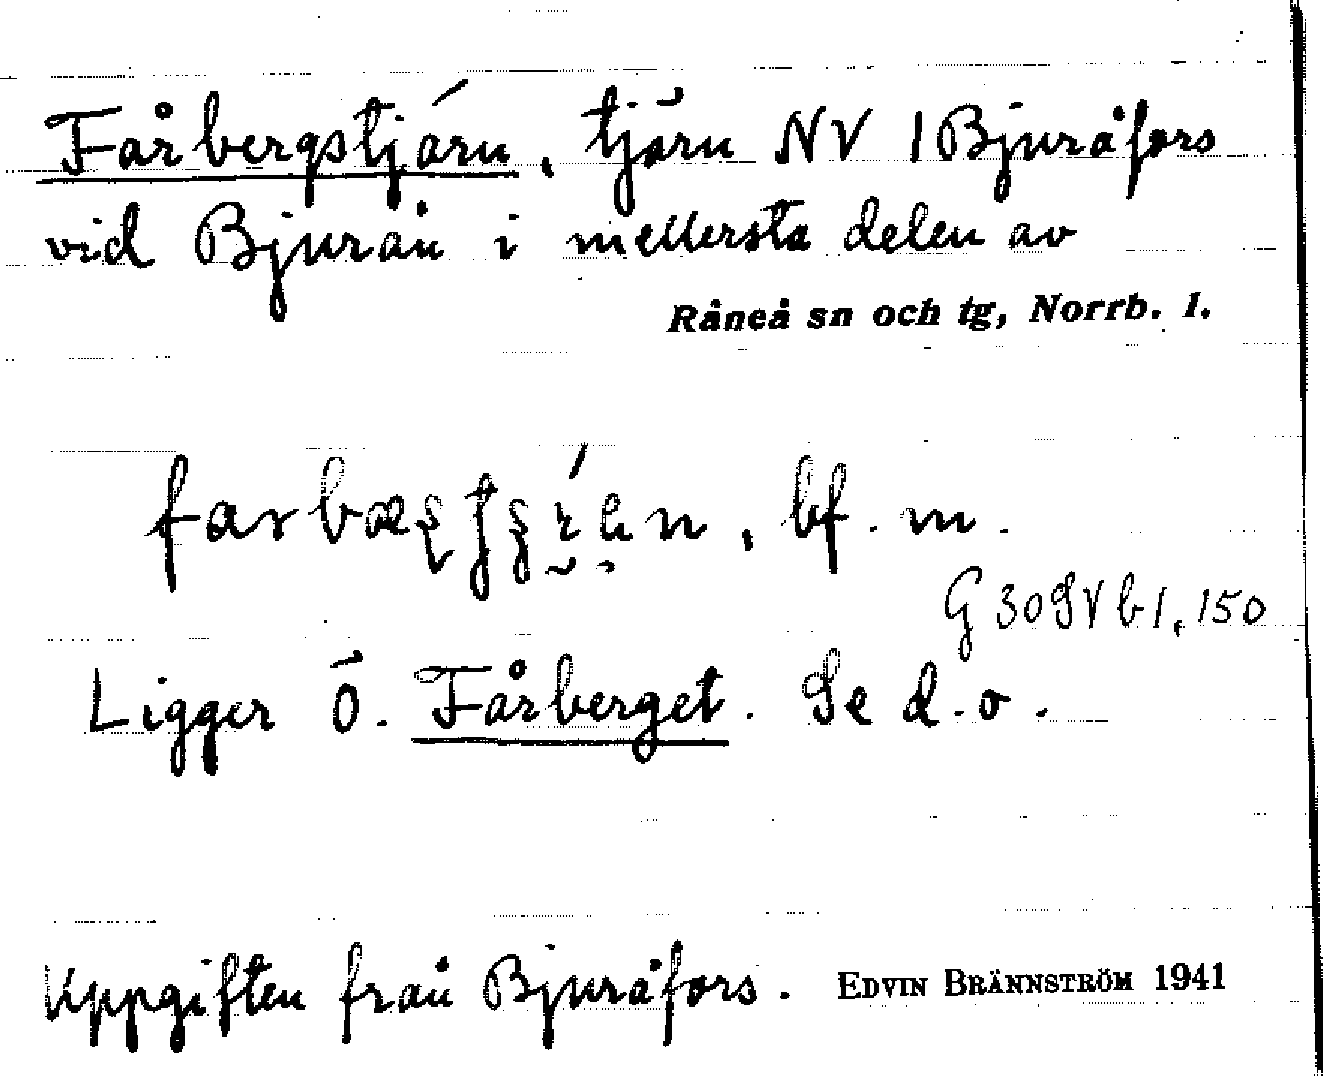 Fårbergstjärn, tjärn NV 1 Bjuråfors
vid Bjurån i mellersta delen av
Råneå sn och tg, Norrb. l.
bf. m.
G 30 SV b 1, 150
Ligger Ö. Fårberget. Se d.o.
Uppgiften från Bjuråfors. EDVIN BRÄNNSTRÖM 1941